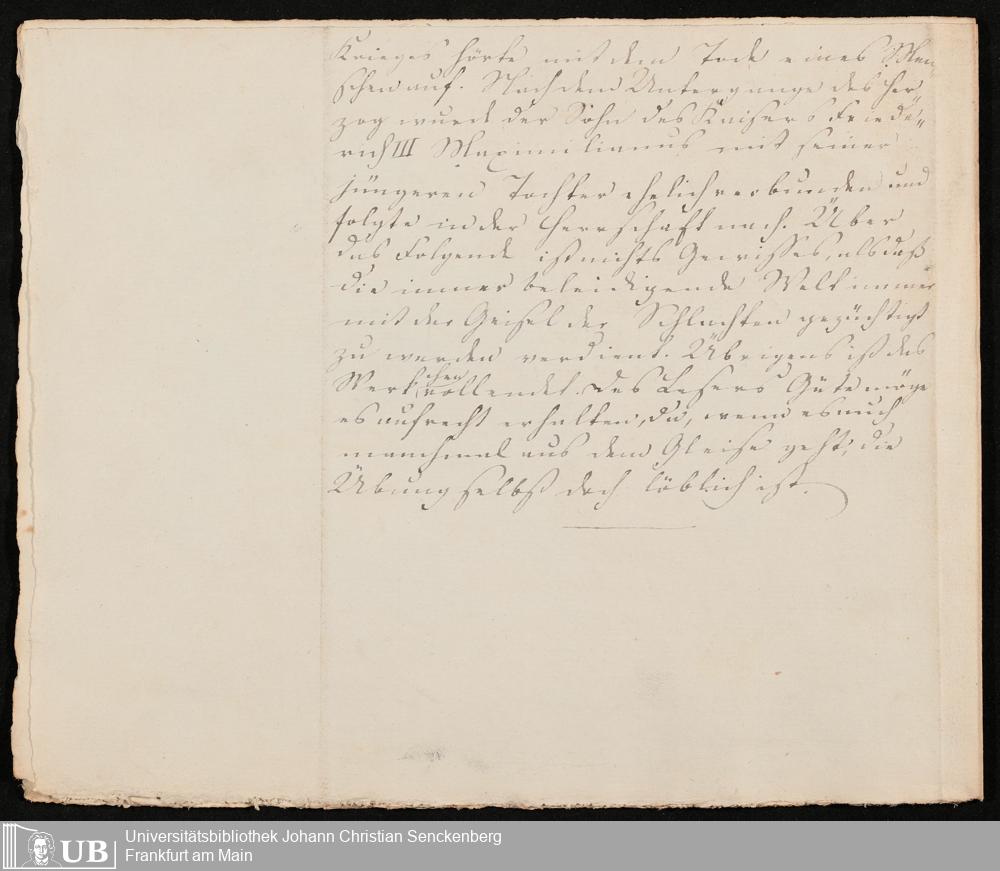 Krieges hörte mit dem Tode eines Men-
schen auf. Nach dem Untergange des Her-
zog wurde der Sohn des Kaisers Friede-
rich III Maximilianus mit seiner
jüngeren Tochter ehelich verbunden und
folgte in der Herrschaft nach. Über
das Folgende ist nichts Gewisses, als daß
die immer beleidigende Welt immer
mit der Geisel der Schlachten gezüchtigt
zu werden verdient. Übrigens ist das
Werkchen vollendet. Des Lesers Güte möge
es aufrecht erhalten, da, wenn es auch
manchmal aus dem Gleise geht, die
Übung selbst doch löblich ist.
UB
Universitätsbibliothek Johann Christian Senckenberg
Frankfurt am Main